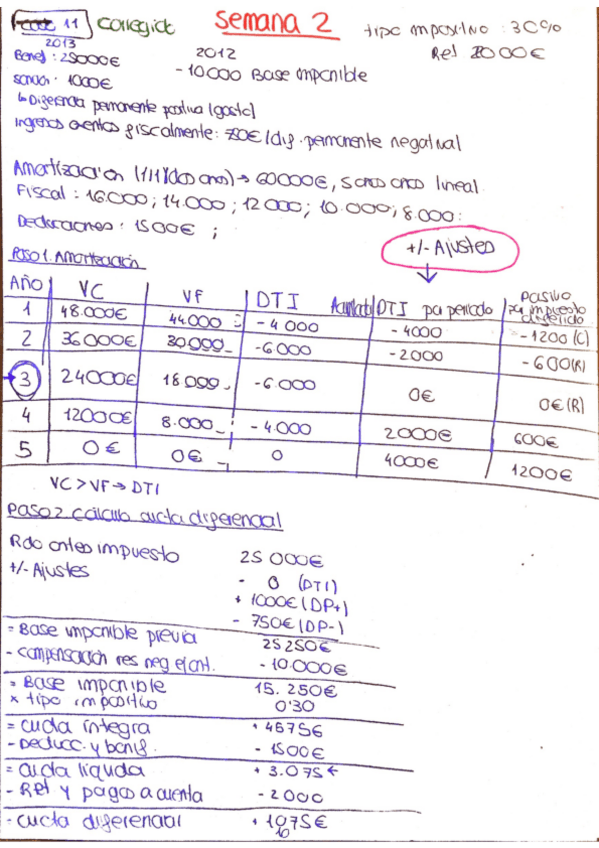 11 corregido Semana 2 tipo impositivo: 30%
2013 2012 Ret 2000€
Benef: 25000€ -10000 Base imponible
sanción: 1000€
↳ Diferencia permanente positiva (gasto)
Ingresos exentos fiscalmente: 750€ (dif. permanente negativa)
Amortización (1/1/(dos años) → 60000€, 5 años años lineal.
Fiscal: 16.000; 14.000; 12000; 10.000; 8.000:
Deducciones: 1500€ ;
+/- Ajustes
Paso 1. Amortización
Año VC VF DTI Acumulado DTI por periodo Pasivo por impuesto diferido
1 48.000€ 44.000 = -4000 -4000 -1200 (C)
2 36000€ 30.000 - -6000 -2000 -600 (R)
→3 24000€ 18.000 - -6.000 0€ 0€ (R)
4 12000€ 8.000 - -4.000 2000€ 600€
5 0€ 0€ - 0 4000€ 1200€
VC > VF → DTI
Paso 2. Cálculo cuota diferencial
Rdo antes impuesto 25 000€
+/- Ajustes - 0 (DTI)
+ 1000€ (DP+)
- 750€ (DP-)
= Base imponible previa 25250€
- compensación res neg ej ant. -10.000€
= Base imponible 15.250€
x tipo impositivo 0'30
= cuota íntegra + 4575€
- Deducc. y bonif. - 1500€
= cuota líquida + 3.075 ←
- Ret y pagos a cuenta - 2000
- cuota diferencial + 1075€